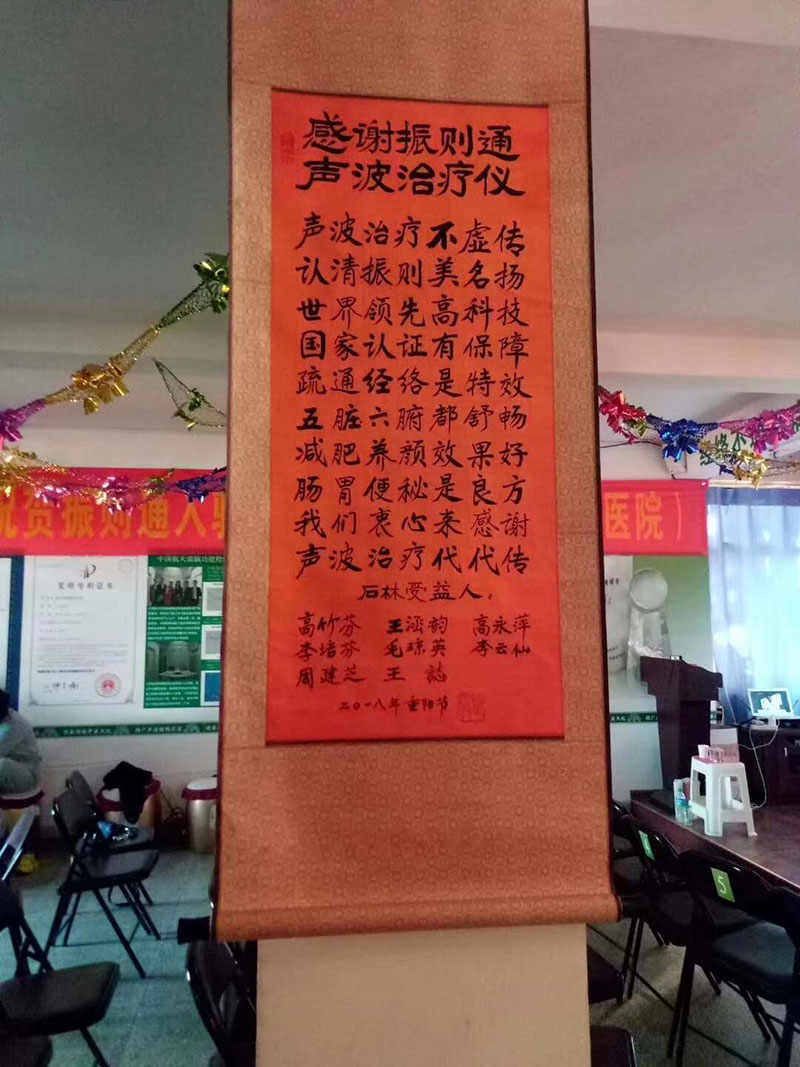 感谢振则通
声波治疗仪
声波治疗不虚传
认清振则美名扬
世界领先高科技
国家认证有保障
疏通经络是特效
五脏六腑都舒畅
减肥养颜效果好
肠胃便秘是良方
我们衷心来感谢
声波治疗代代传
石林受益人：
高竹芬 王涵韵 高永萍
李培芬 毛琼英 李云仙
周建芝 王 誌
二〇一八年重阳节
祝贺振则通入驻
医院）
发明专利证书
5